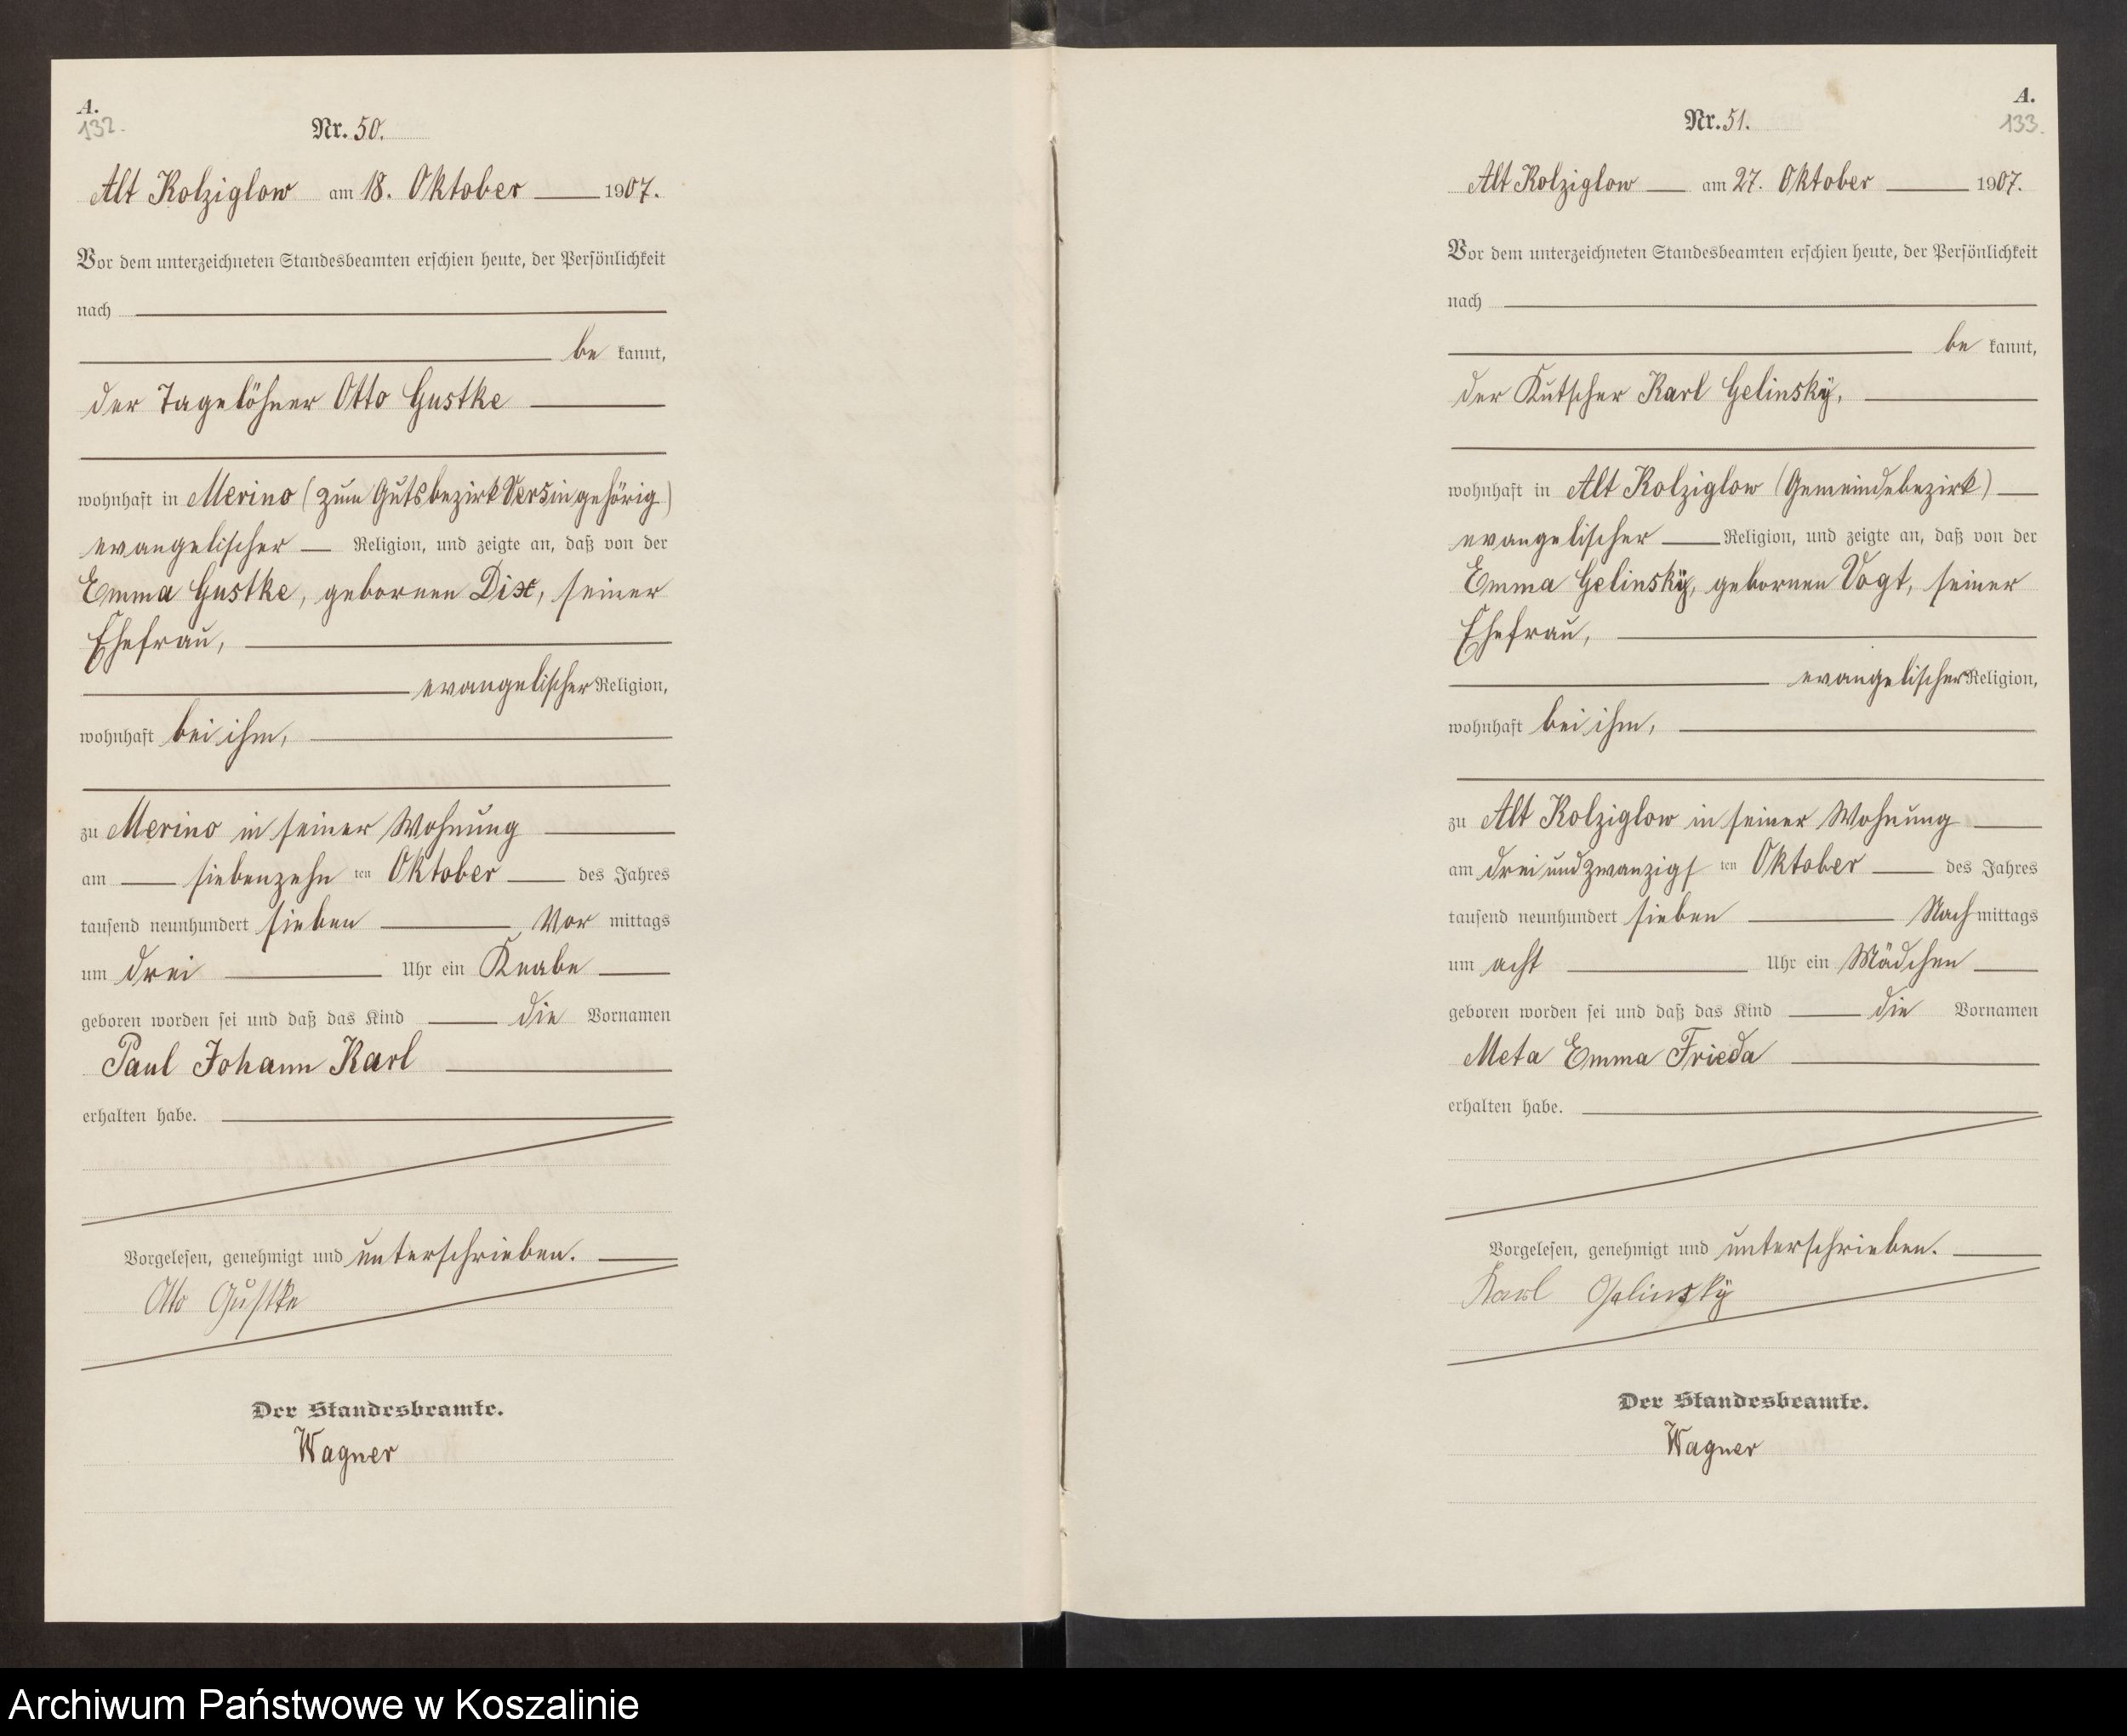 A.
132.
Nr. 50.
Alt Kolziglow am 18. Oktober 1907.
Vor dem unterzeichneten Standesbeamten erschien heute, der Persönlichkeit
nach
be kannt,
der Tagelöhner Otto Gustke
wohnhaft in Merino (zum Gutsbezirk Versin gehörig)
evangelischer Religion, und zeigte an, daß von der
Emma Gustke, gebornen Dix, seiner
Ehefrau,
evangelischer Religion,
wohnhaft bei ihm,
zu Merino in seiner Wohnung
am siebenzehn ten Oktober des Jahres
tausend neunhundert sieben Vor mittags
um drei Uhr ein Knabe
geboren worden sei und daß das Kind die Vornamen
Paul Johann Karl
erhalten habe.
Vorgelesen, genehmigt und unterschrieben.
Otto Gustke
Der Standesbeamte.
Wagner
A.
133.
Nr. 51.
Alt Kolziglow am 27. Oktober 1907.
Vor dem unterzeichneten Standesbeamten erschien heute, der Persönlichkeit
nach
be kannt,
der Kutscher Karl Gelinsky,
wohnhaft in Alt Kolziglow (Gemeindebezirk)
evangelischer Religion, und zeigte an, daß von der
Emma Gelinsky, gebornen Vogt, seiner
Ehefrau,
evangelischer Religion,
wohnhaft bei ihm,
zu Alt Kolziglow in seiner Wohnung
am dreiundzwanzigs ten Oktober des Jahres
tausend neunhundert sieben Nach mittags
um acht Uhr ein Mädchen
geboren worden sei und daß das Kind die Vornamen
Meta Emma Frieda
erhalten habe.
Vorgelesen, genehmigt und unterschrieben.
Karl Gelinsky
Der Standesbeamte.
Wagner
Archiwum Państwowe w Koszalinie